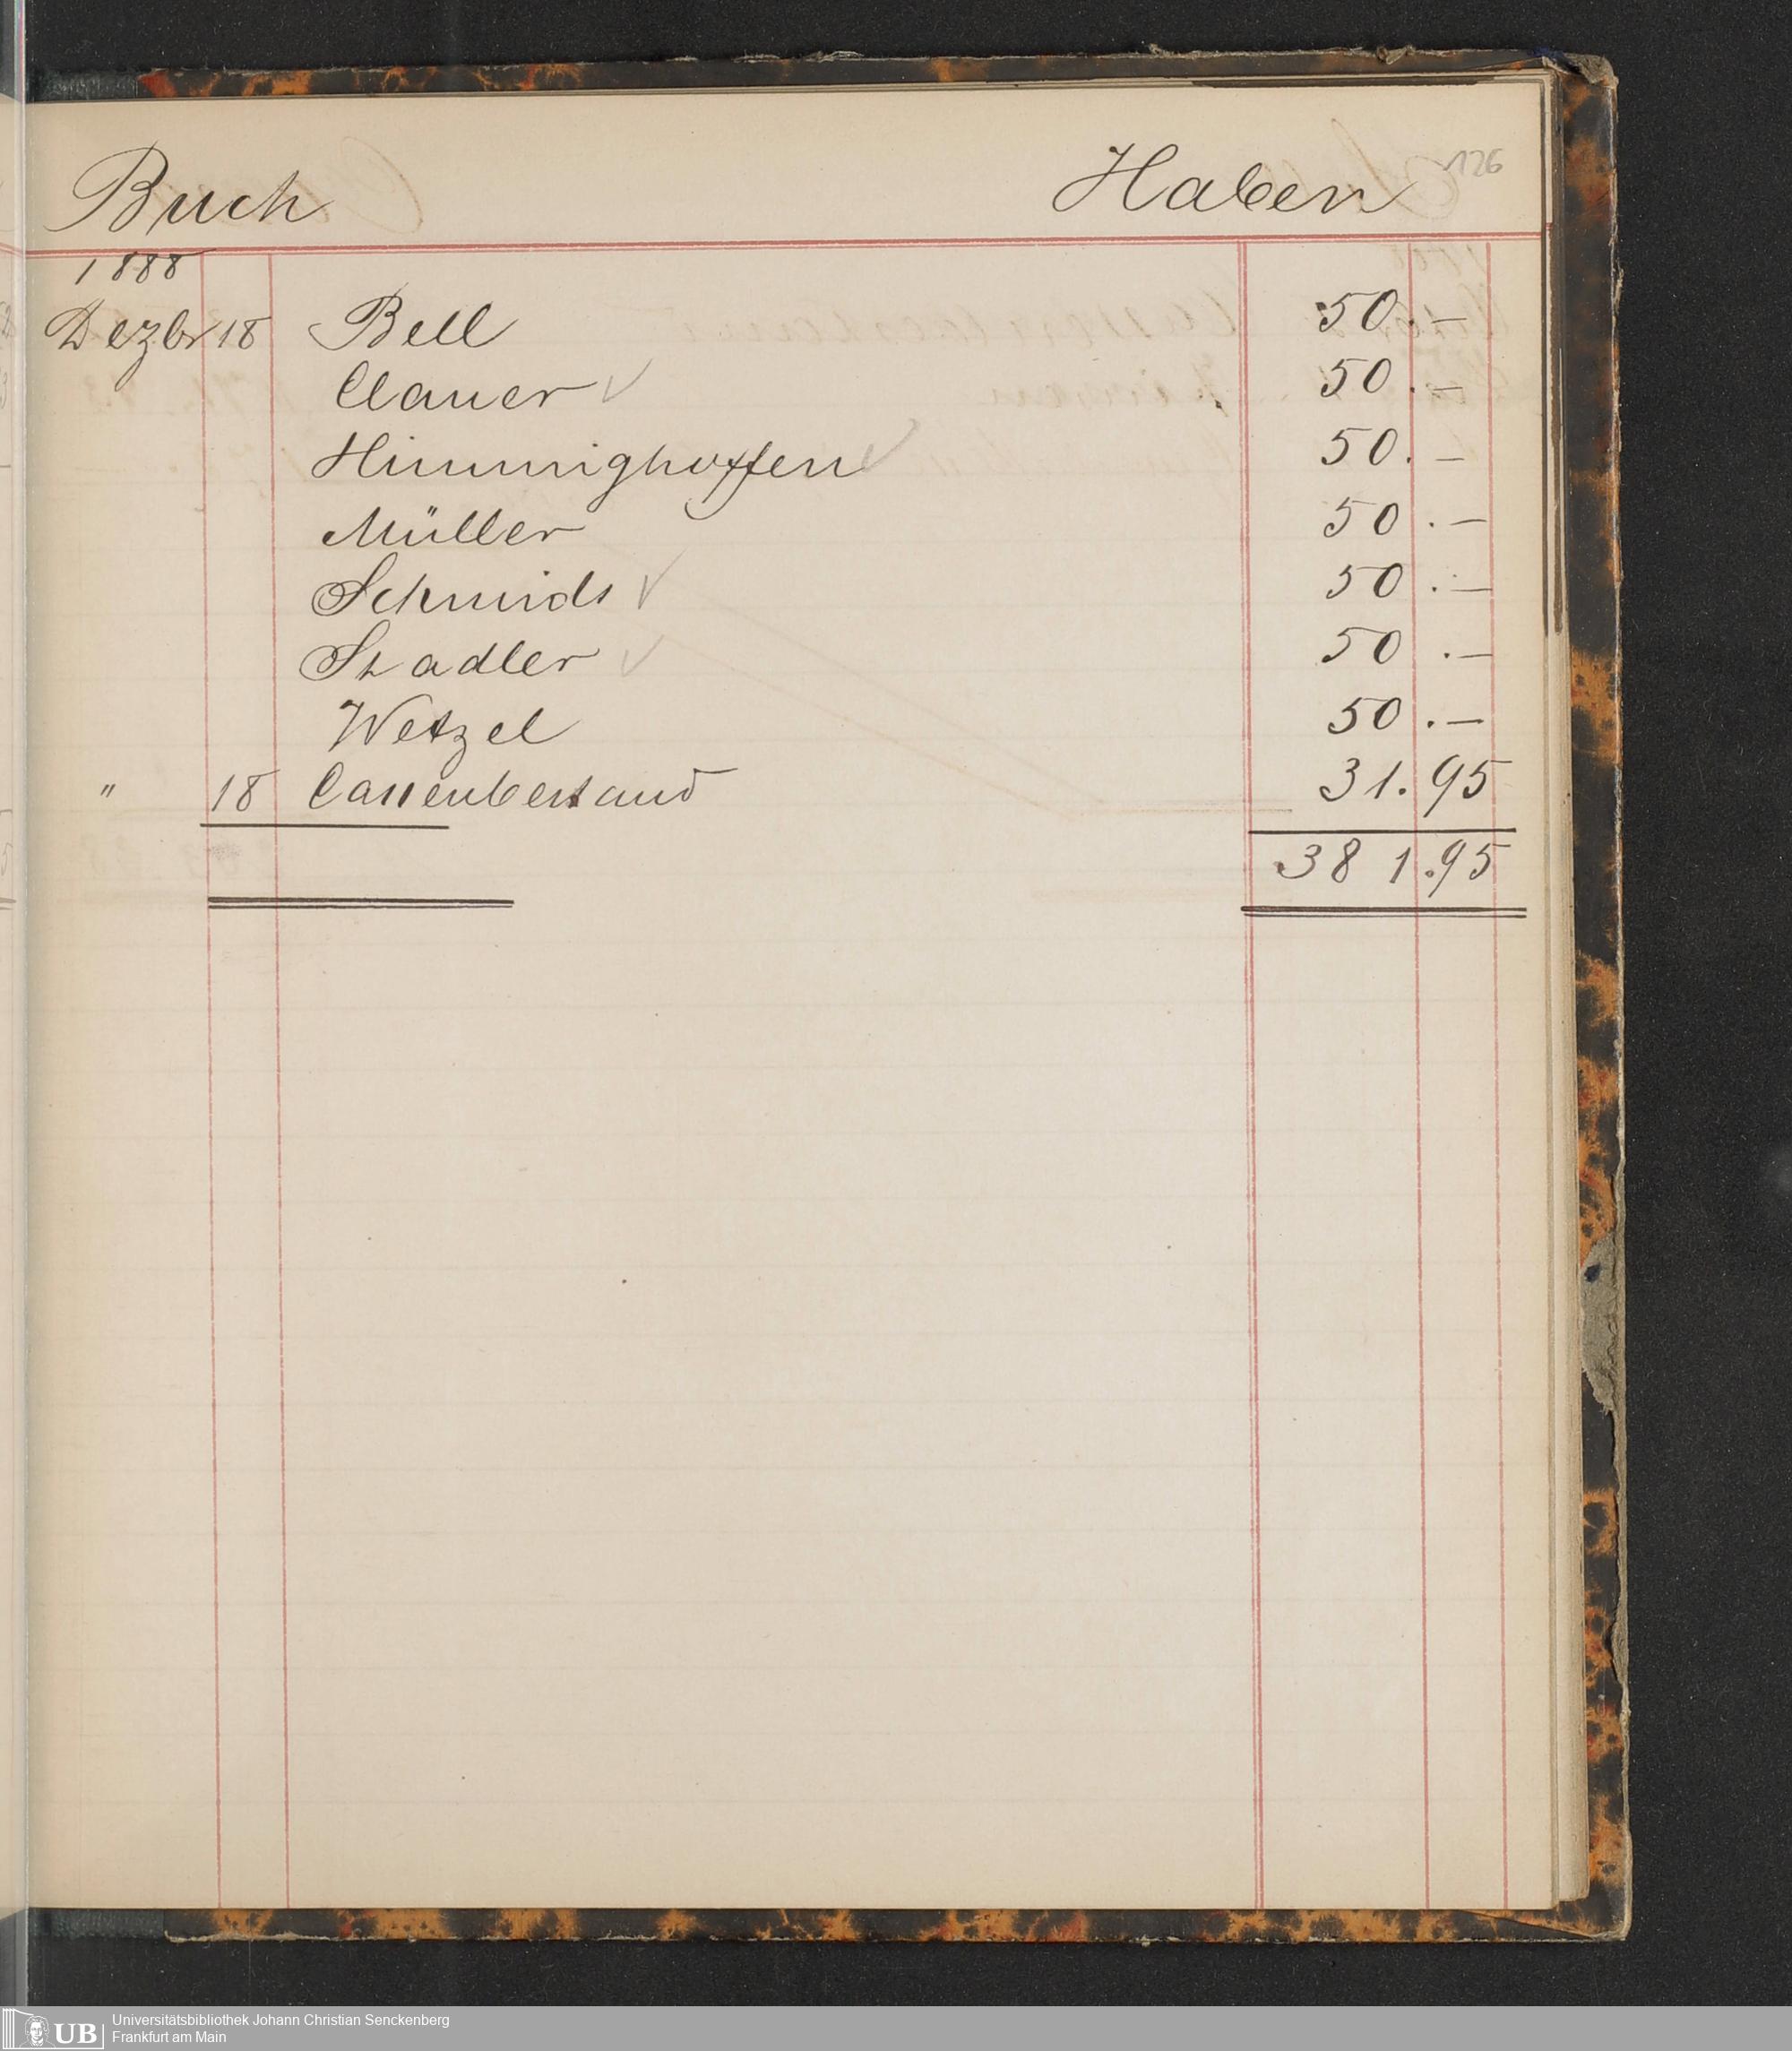 Buch Haben 126
1888
Dezbr 18 Bell 50.—
Clauer ✓ 50.—
Himmighoffen ✓ 50.—
Müller 50.—
Schmidt ✓ 50.—
Stadler ✓ 50.—
Wetzel 50.—
" 18 Cassenbestand 31.95
381.95
UB Universitätsbibliothek Johann Christian Senckenberg
Frankfurt am Main